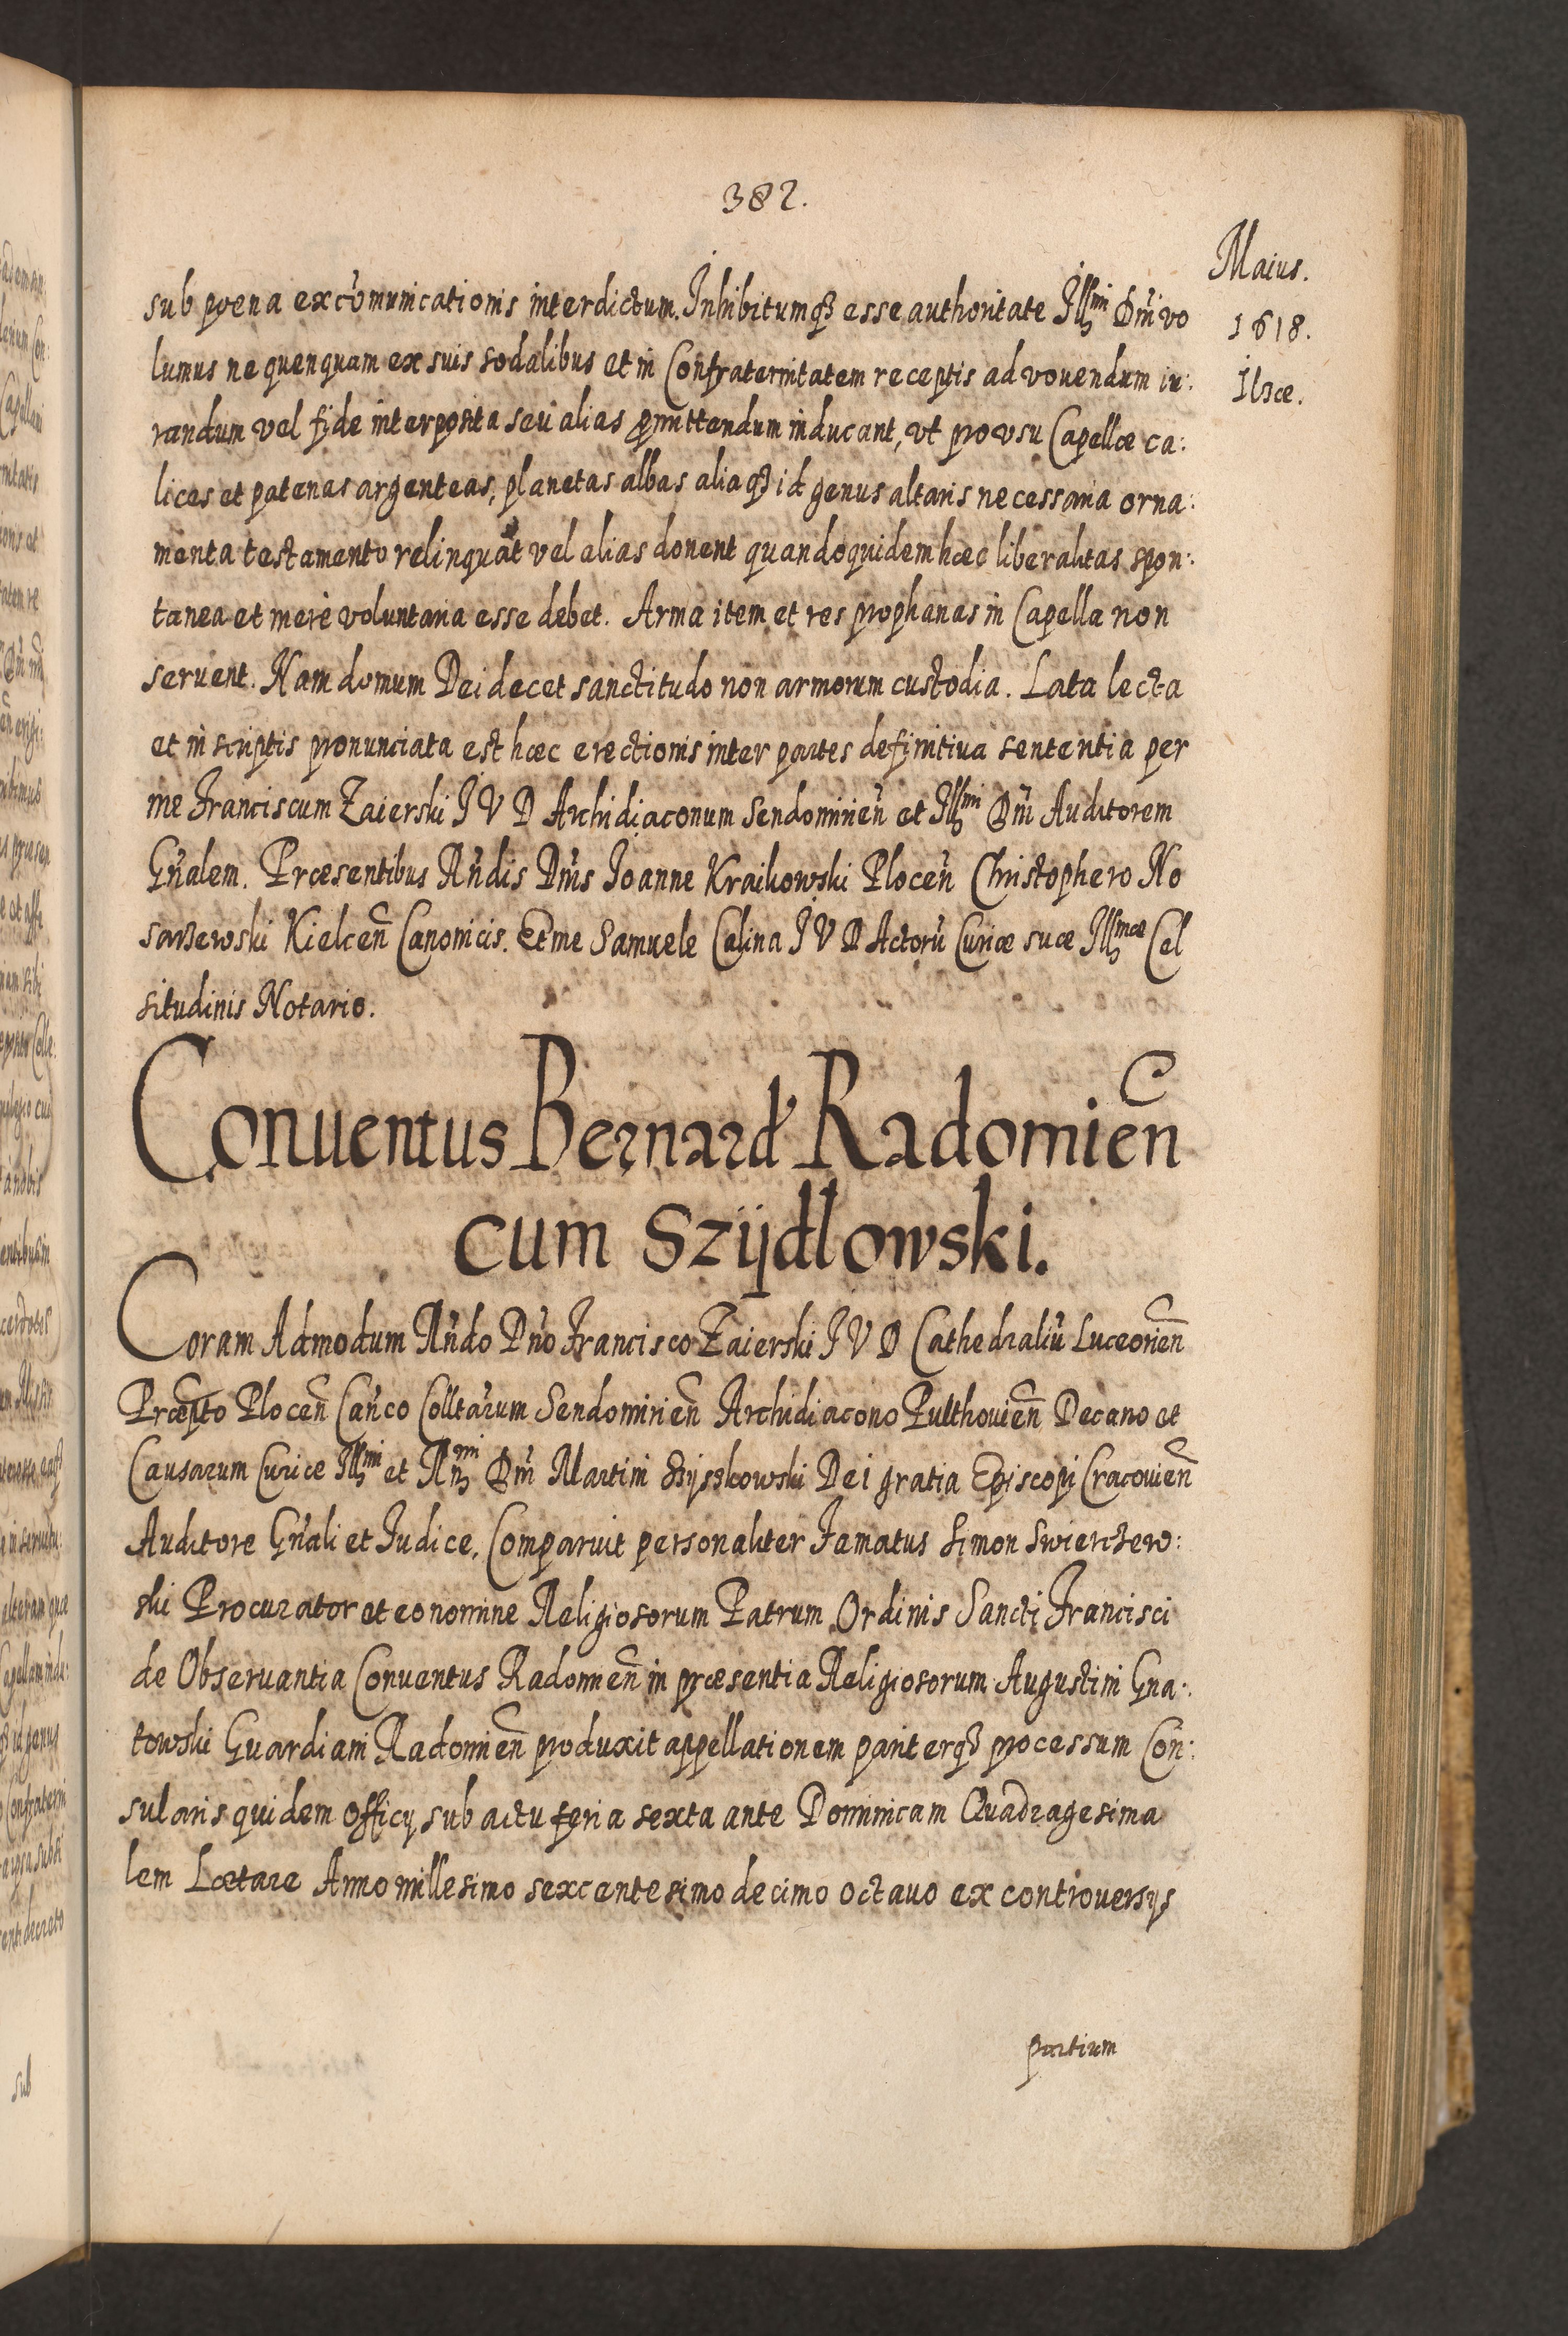 382.
Maius.
1618.
Ilzæ.
sub poena excõmunicationis interdictum. Inhibitumq3 esse authoritate Illmi Dñi vo
lumus ne quenquam ex suis sodalibus et in Confraternitatem receptis ad vouendum iu:
randum vel fide interposita seu alias pmittendum inducant, vt pro vsu Capellæ ca:
lices et patenas argenteas, planetas albas aliaq3 id genus altaris necessaria orna:
menta testamento relinquãt vel alias donent quandoquidem hæc liberalitas spon:
tanea et merè voluntaria esse debet. Arma item et res prophanas in Capella non
seruent. Nam domum Dei decet sanctitudo non armorum custodia. Lata lecta
et in scriptis pronunciata est hæc erectionis inter partes definitiua sententia per
me Franciscum Zaierski I V D Archidiaconum Sendomirieñ et Illmi Dñi Auditorem
Gñalem. Præsentibus Rñdis Dñis Ioanne Kraikowski Ploceñ Christophero No
sarzewski Kielceñ Canonicis. Et me Samuele Calina I V D Actorũ Curiæ suæ Illmæ Cel
situdinis Notario.
Conuentus Bernard Radomieñ
cum Szijdlowski.
Coram Admodum Rñdo Dño Francisco Zaierski I V D Cathedraliũ Luceorieñ
Præpto Ploceñ Cañco Colltarum Sendomirieñ Archidiacono Pulthouieñ Decano et
Causarum Curiæ Illmi et Rñmi Dñi Martini Szyszkowski Dei gratia Episcopi Cracouieñ
Auditore Gñali et Iudice, Comparuit personaliter Famatus Simon Swierczew:
ski Procurator et eo nomine Religiosorum Patrum Ordinis Sancti Francisci
de Obseruantia Conuentus Radomieñ in præsentia Religiosorum Augustini Gna:
towski Guardiani Radomieñ produxit appellationem pariterq3 processum Con:
sularis quidem officij sub actu feria sexta ante Dominicam Quadragesima
lem Lætare Anno millesimo sexcentesimo decimo octauo ex controuersijs
partium